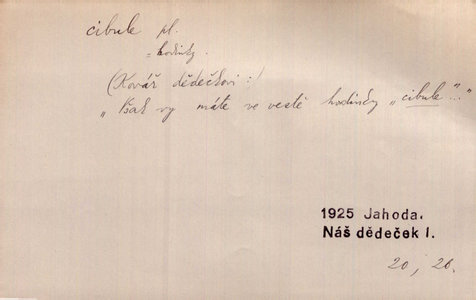 cibule pl.
= hodinky.
(Kovář dědečkovi:)
„Však vy máte ve vestě hodinky „cibule"..."
1925 Jahoda.
Náš dědeček I.
20, 26.